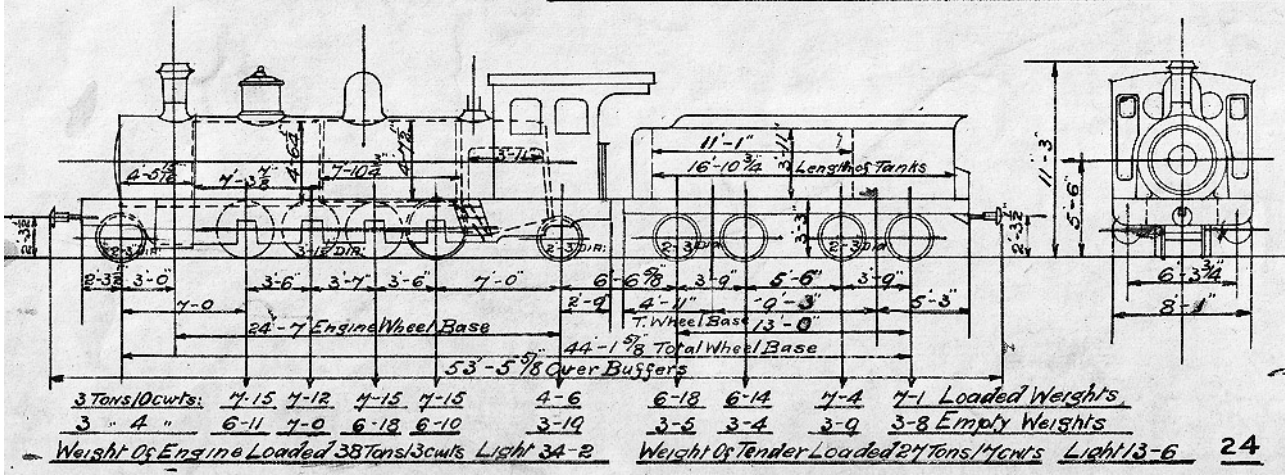 11'-1"
4'-5 15/16 4'-6¾" 7'-10¾" 4'-7½" 3'-1½ 3'-11" 16'-10¾" Length of Tanks 11'-3"
7'-3⅞" 5'-6"
2'-3½" 3'-3" 2'-3½"
2'-3 DIA. 3'-1½ DIA. 2'-3 DIA. 2'-3 DIA 2'-3 DIA
2'-3½ 3'-0" 3'-6" 3'-7" 3'-6" 7'-0" 6'-6⅝" 3'-9" 5'-6" 3'-9" 6'-3¾"
7-0 2'-9" 4'-11" 9'-3" 5'-3" 8'-1"
24'-7" Engine Wheel Base T. Wheel Base 13'-0"
44'-1⅝" Total Wheel Base
53'-5⅝" Over Buffers
3 Tons 10 cwts: 7-15 7-12 7-15 7-15 4-6 6-18 6-14 7-4 7-1 Loaded Weights
3 " 4 " 6-11 7-0 6-18 6-10 3-19 3-5 3-4 3-9 3-8 Empty Weights
Weight Of Engine Loaded 38 Tons 13 cwts Light 34-2 Weight Of Tender Loaded 27 Tons 17 cwts Light 13-6 24